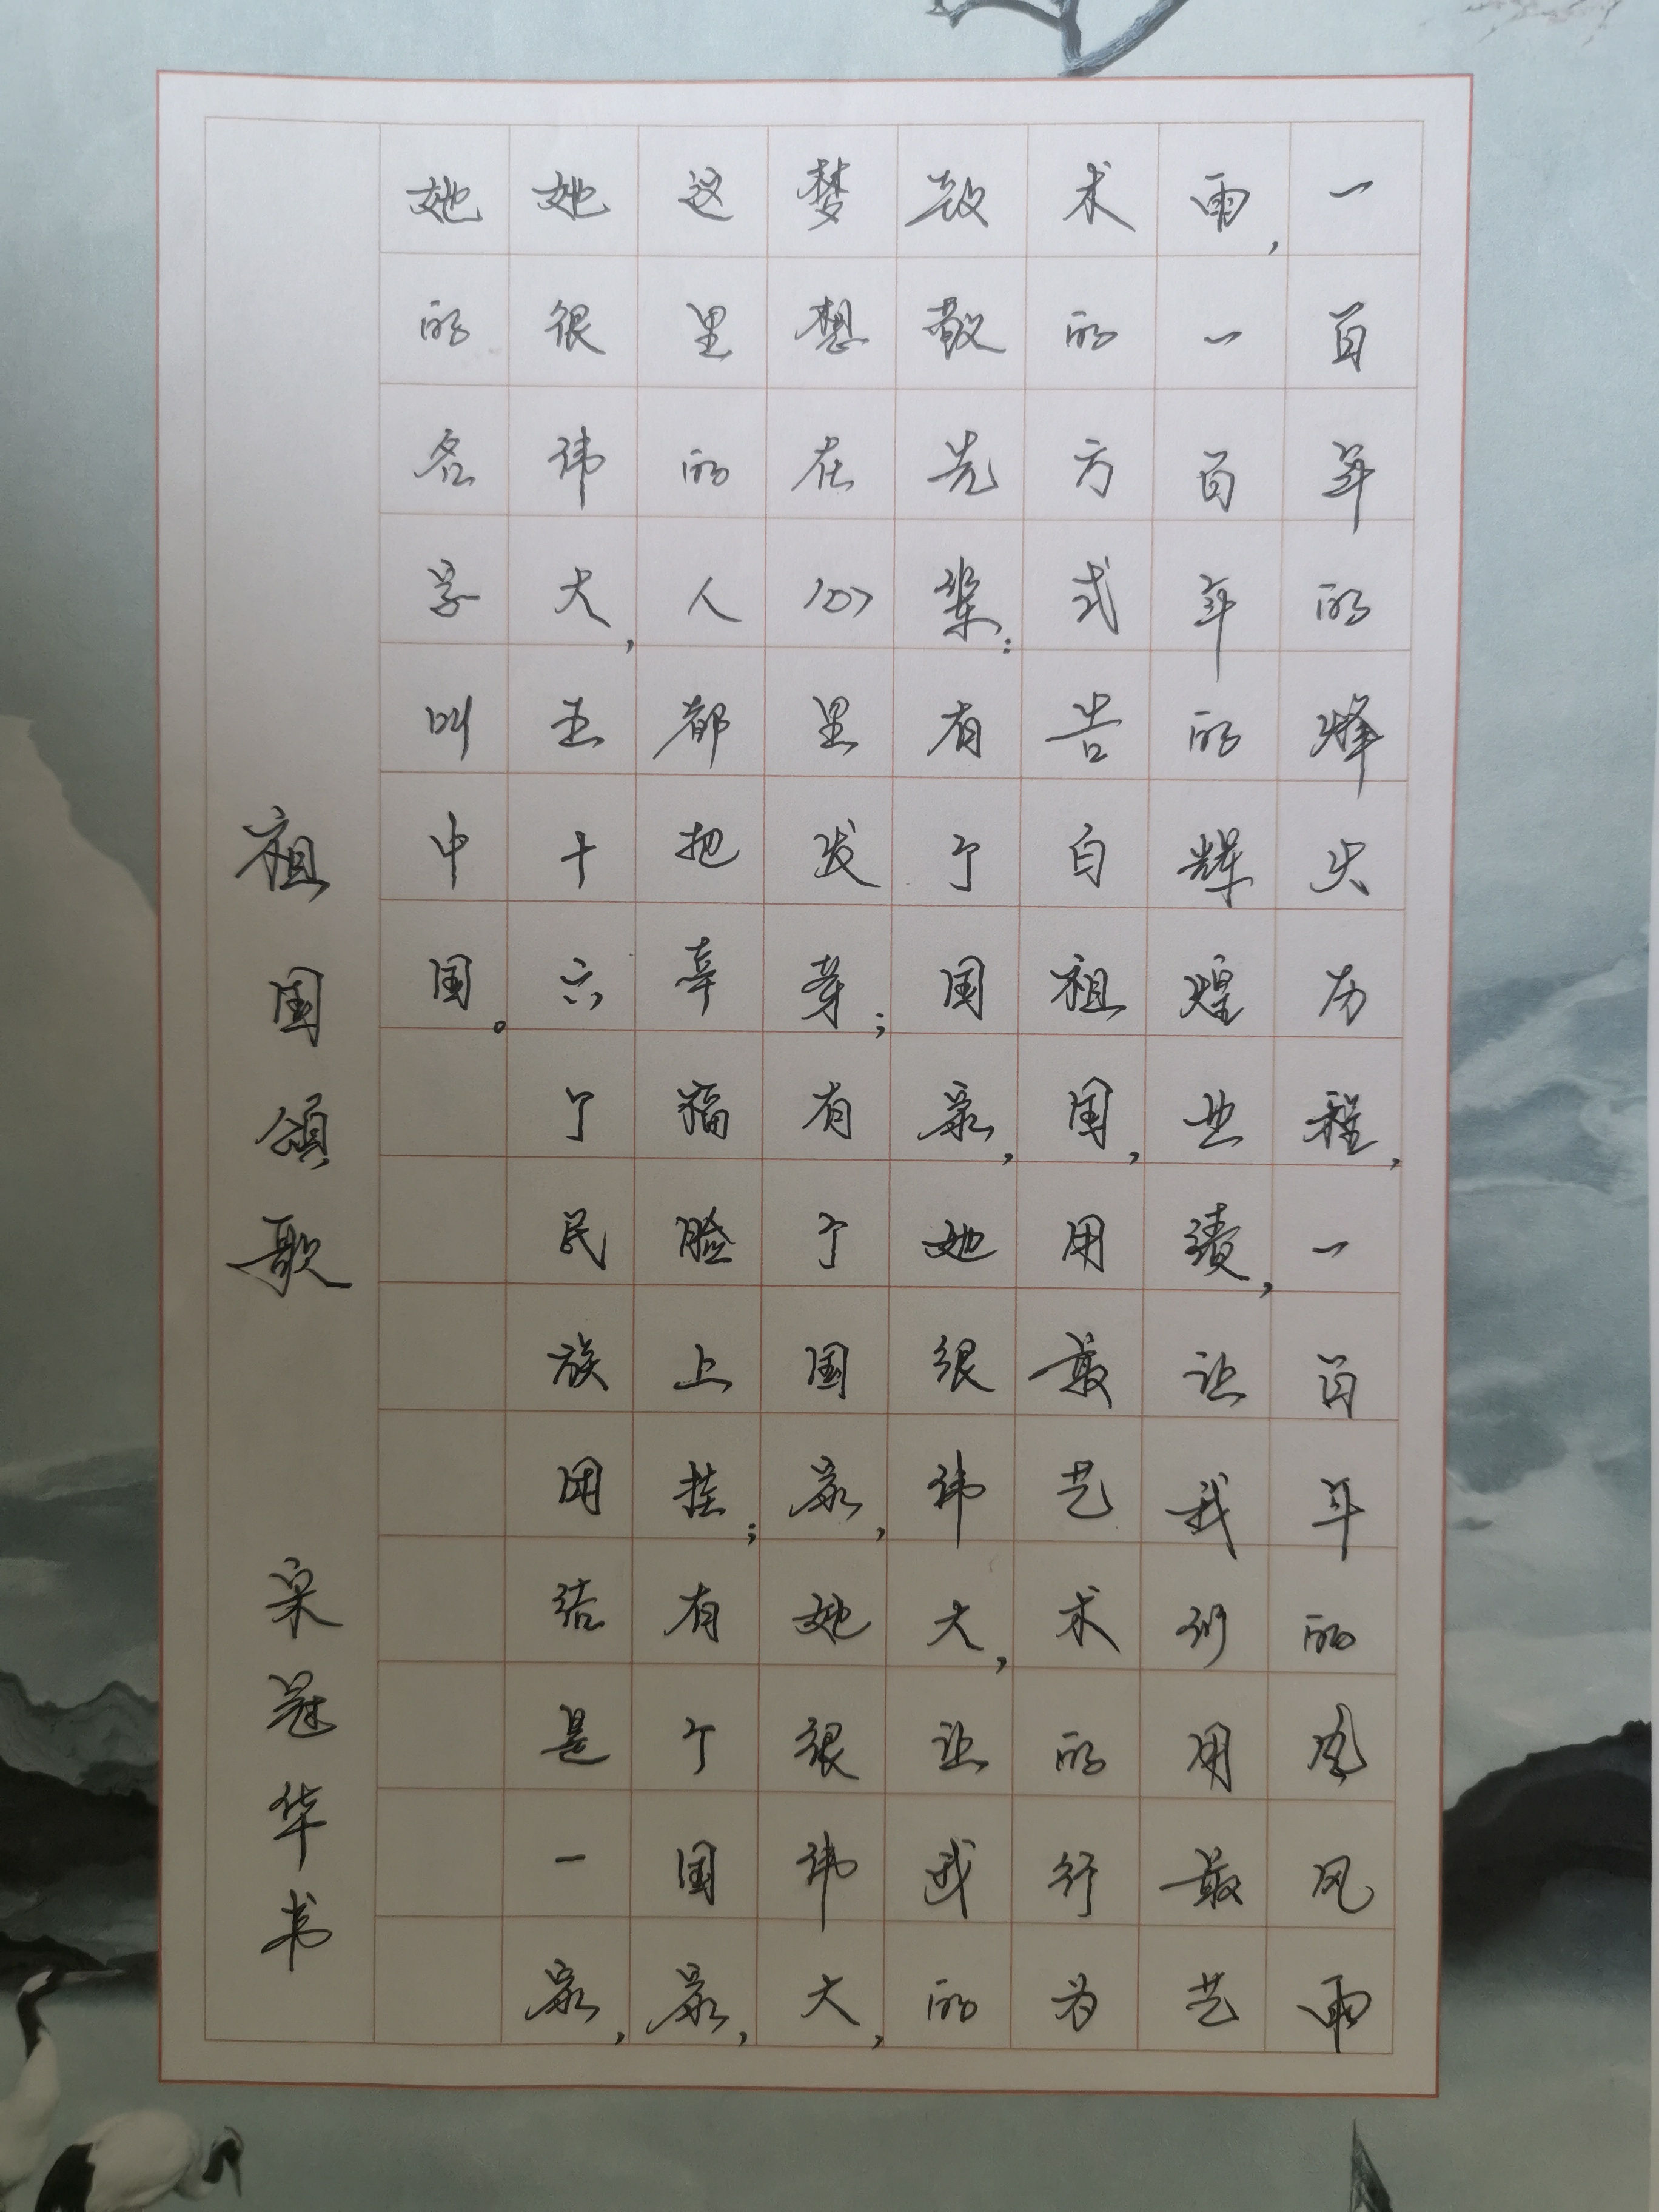 一百年的烽火历程,一百年的风风雨
雨,一百年的辉煌业绩,让我们用最艺
术的方式告白祖国,用最艺术的行为
致敬先辈:有个国家,她很伟大,让我的
梦想在心里发芽;有个国家,她很伟大,
这里的人都把幸福脸上挂;有个国家,
她很伟大,五十六个民族团结是一家,
她的名字叫中国。
祖国颂歌 宋冠华书